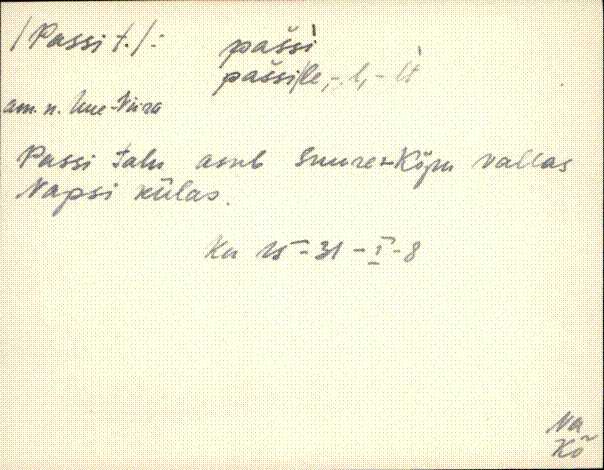 /Passi t./: pašši̇̀
pašši/le, -, l, - lt
am. n. Uue-Viira
Passi talu asub Suure-Kõpu vallas
Napsi külas.
Ku 15 - 31 - I - 8
Na
Kõ